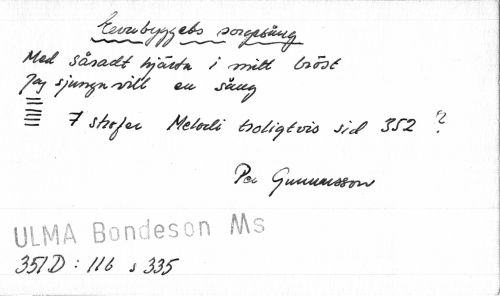 sorgesång
Med såradt hjärta i mitt bröst
Jag sjunga vill en sång
7 strofer Melodi troligtvis sid 352 ?
Per Gunnarsson
ULMA Bondeson Ms
351D : 116 s 335